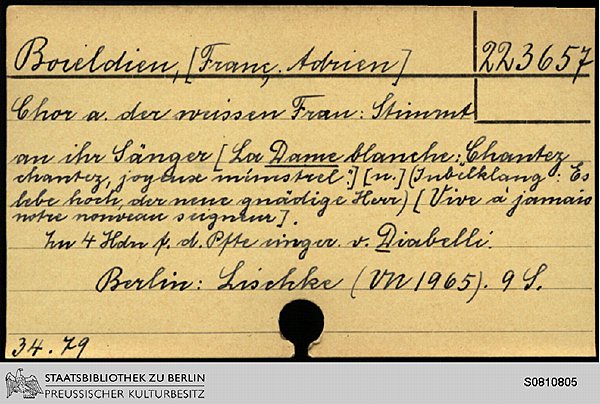 Boieldieu, [Franç. Adrien]
223657
Chor a. der weissen Frau: Stimmt
an ihr Sänger [La Dame blanche: Chantez
chantez, joyeux ménestrel:] [u.] (Jubelklang: Es
lebe hoch, der neue gnädige Herr) [Vive à jamais
notre nouveau seigneur].
Zu 4 Hdn f. d. Pfte einger. v. Diabelli.
Berlin: Lischke (VN 1965). 9 S.
34.79
STAATSBIBLIOTHEK ZU BERLIN
PREUSSISCHER KULTURBESITZ
S0810805